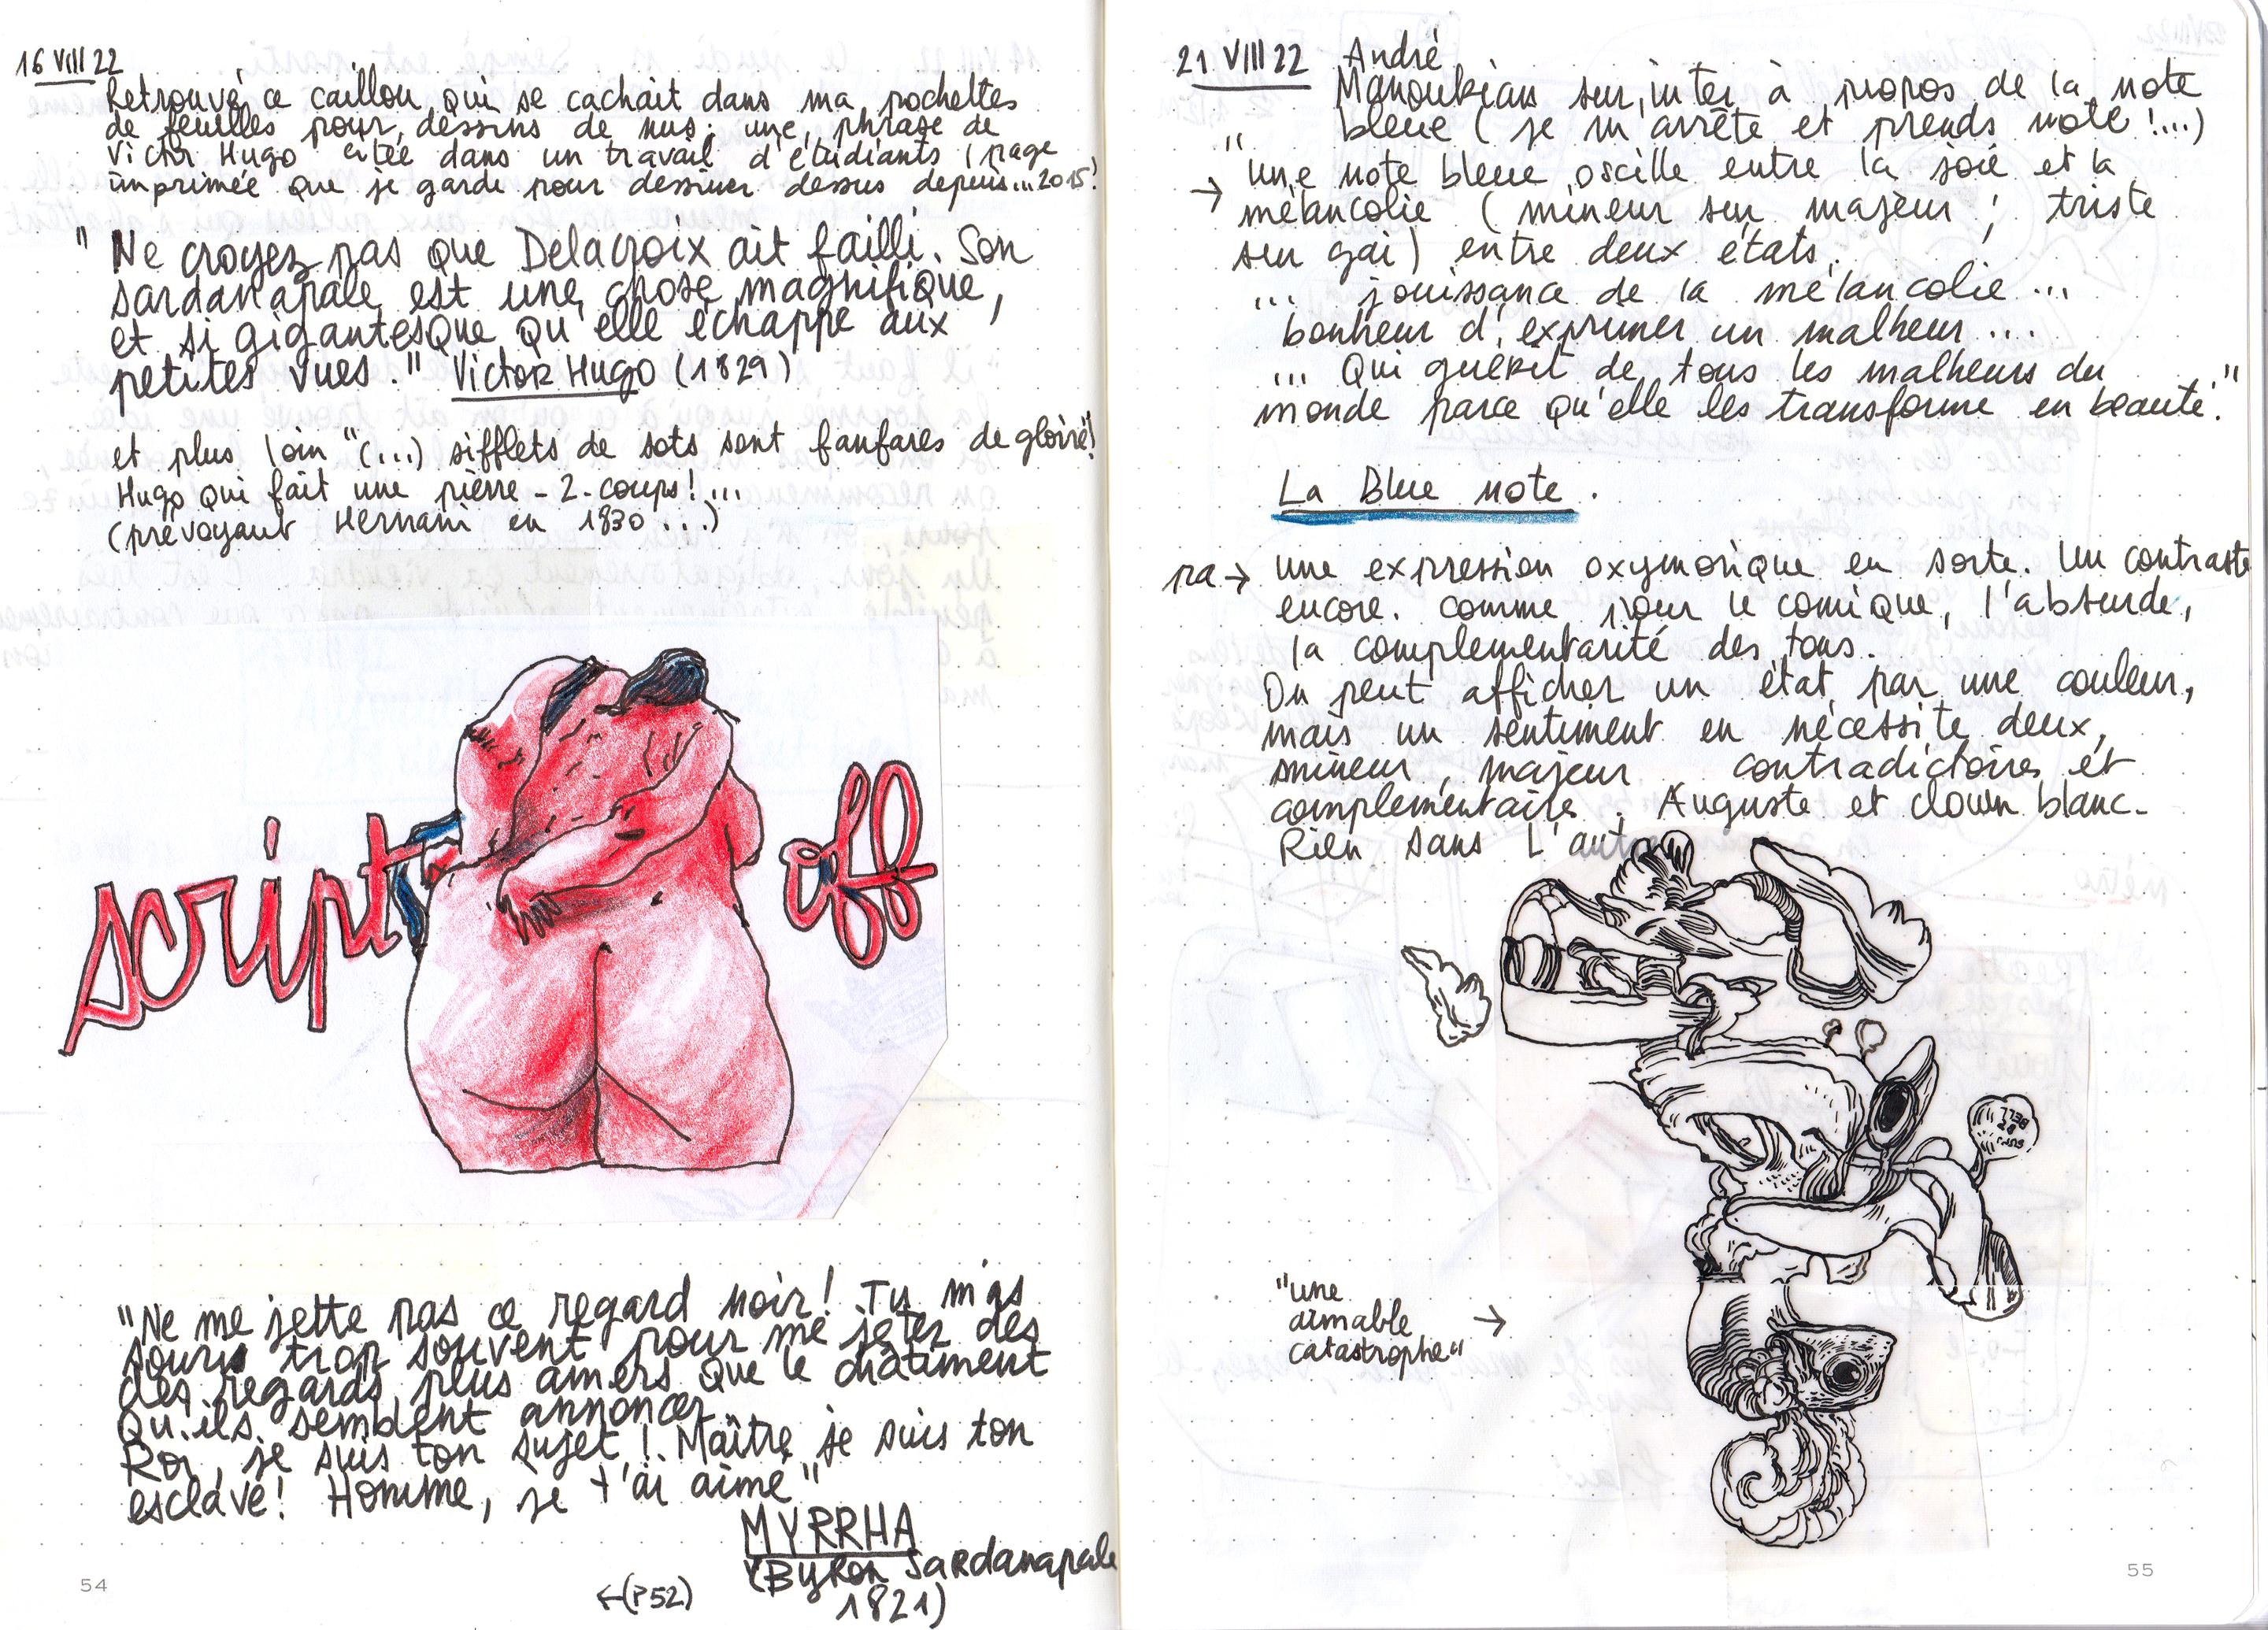 16 VIII 22
Retrouvé ce caillou qui se cachait dans ma pochettes
de feuilles pour dessins de nus : une phrase de
Victor Hugo citée dans un travail d'étudiants (page
imprimée que je garde pour dessiner dessus depuis...2015!
" Ne croyez pas que Delacroix ait failli. Son
sardanapale est une chose magnifique,
et si gigantesque qu'elle échappe aux
petites vues." Victor Hugo (1829)
et plus loin "(...) sifflets de sots sont fanfares de gloire"!
Hugo qui fait une pierre-2-coups!...
(prévoyant Hernani en 1830...)
script off
"Ne me jette pas ce regard noir! Tu m'as
souris trop souvent pour me jeter des
des regards plus amers que le châtiment
qu'ils semblent annoncer
Roi, je suis ton sujet ! Maître je suis ton
esclave! Homme, je t'ai aimé"
MYRRHA
(Byron Sardanapale
1821)
←(P52)
54
21 VIII 22 André
Manoukian sur inter à propos de la note
bleue (je m'arrête et prends note !...)
"
→ une note bleue oscille entre la joie et la
mélancolie (mineur sur majeur ; triste
sur gai) entre deux états.
... jouissance de la mélancolie...
bonheur d'exprimer un malheur...
... Qui guérit de tous les malheurs du
monde parce qu'elle les transforme en beauté."
La Blue note.
pa→ une expression oxymorique en sorte. Un contraste
encore. comme pour le comique, l'absurde,
la complémentarité des tons.
On peut afficher un état par une couleur,
mais un sentiment en nécessite deux,
mineur, majeur contradictoires et
complémentaire. Auguste et clown blanc.
Rien sans L'autre
"une
aimable →
catastrophe"
55